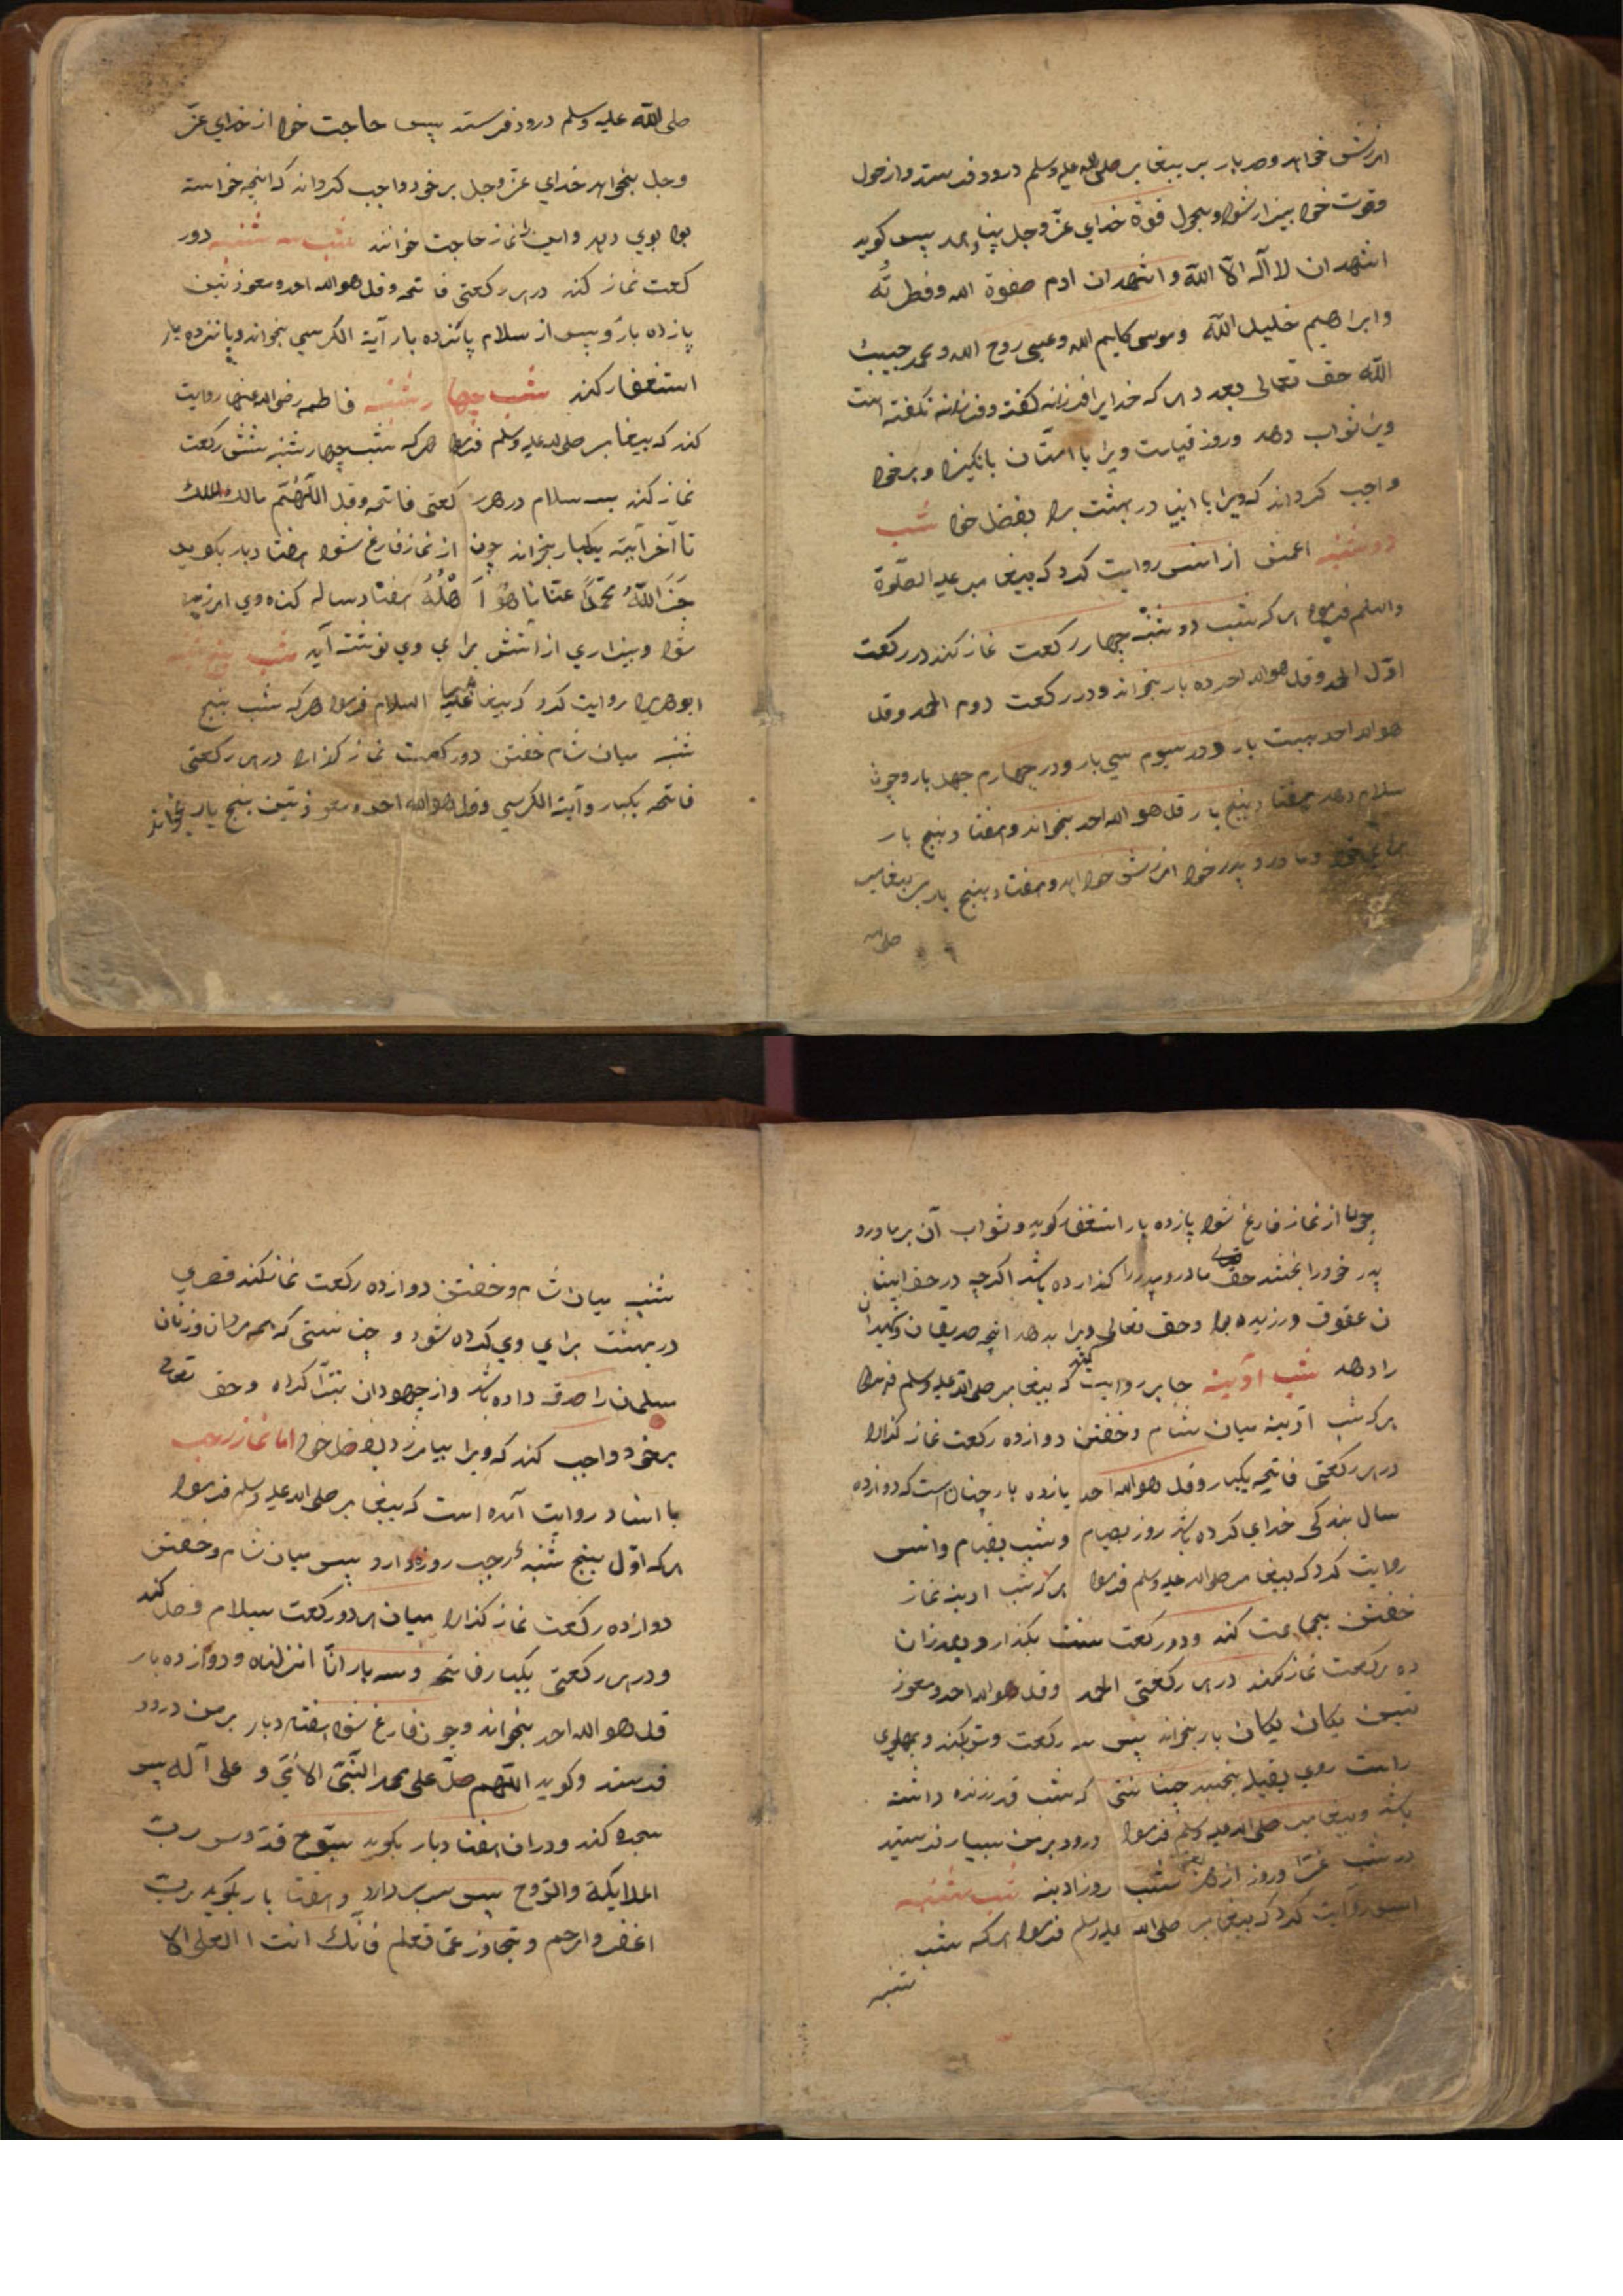 امرزش خواهد و صد بار بر پیغامبر صلی الله علیه وسلم درود فرستد و از حول
وقوت خود بیزار شود و بحول قوة خدای عزّ وجل پناهد پس کوید
اشهد ان لا آله الّا اللّه و اشهد ان ادم صفوة الله وفطرتُه
وابراهیم خلیل اللّه وموسی کلیم الله وعیسی روح الله ومحمد حبیبُ
اللّه حق تعالی بعدد هر که خدایرا فرزند کفت وفرزند نکفته است
ویرا ثواب دهد وروز قیامت ویرا با امنان بانکیزد و بر خود
واجب کرداند که ویرا با انبیا در بهشت برد بفضل خود شب
دوشنبه اعمش از انس روایت کرد که پیغامبر علیه الصلوة
والسلم فرمود هر که شب دوشنبه چهار رکعت نماز کند در رکعت
اوّل الحمد وقل هو الله احد ده بار بخواند ودر رکعت دوم الحمد وقل
هو الله احد بیست بار ودر سیوم سی بار ودر چهارم چهل بار وچون
سلام دهد هفتاد پنج بار قل هو الله احد بخواند وهفتاد وپنج بار
برای خود ومادر و پدر خود امرزش خواهد وهفتاد پنج بار بر پیغامبر
صلی الله
صلی اللّه علیه وسلم درود فرستد پس حاجت خود از خدای عزّ
وجل بخواهد خدای عزّ وجل بر خود واجب کرداند که انچه خواسته
بود بوی دهد واین را نماز حاجت خوانند شب سه شنبه دور
کعت نماز کند در هر رکعتی فاتحه وقل هو الله احد ومعوذتین
پازده بار و پس از سلام پانزده بار آیة الکرسی بخواند وپانزده بار
استغفار کند شب چهار شنبه فاطمه رضی الله عنها روایت
کند که پیغامبر صلی الله علیه وسلم فرمود هر که شب چهار شنبه شش رکعت
نماز کند سه سلام در هر رکعتی فاتحه وقل اللّهمّ مالک الملک
تا آخر آیة یکبار بخواند چون از نماز فارغ شود هفتاد بار بکوید
جَزَ اللّهُ محمّدًا عنّا ما هُوَ اَهْلُهُ هفتاد ساله کناه وی امرزیده
شود وبیزاری از اتش برای وی نوشته آید شب پنج شنبه
ابو هریره روایت کرد که پیغامبر علیه السلام فرمود هر که شب پنج
شنبه میان شام خفتن دو رکعت نماز کذارد در هر رکعتی
فاتحه یکبار وآیة الکرسی وقل هو الله احد ومعوذتین پنج بار بخواند
چون از نماز فارغ شود پازده بار استغفار کوید وثواب آن بر مادر و
پدر خود را بخشد حق مادر وپدر را کذارده باشد اکرچه در حق ایشا
ن عقوق ورزیده بود وحق تعالی ویرا بدهد انچه صدیقان وشهیدان
را دهد شب آدینه جابر روایت کند که پیغامبر صلی الله علیه وسلم فرمود
هر که شب آدینه میان شام وخفتن دوازده رکعت نماز کذارد
در هر رکعتی فاتحه یکبار وقل هو الله احد یازده بار چنان است که دوازده
سال بندکی خدای کرده باشد روز بصیام وشب بقیام وانس
روایت کرد که پیغامبر صلی الله علیه وسلم فرمود هر که شب ادینه نماز
خفتن بجماعت کند ودو رکعت سنت بکذارد وبعد از ان
ده رکعت نماز کند در هر رکعتی الحمد وقل هو الله احد ومعوذ
تین یکان یکان بار بخواند پس سه رکعت وتر بکند وبپهلوی
راست روی بقبله بخسبد چنانستی که شب قدر زنده داشته
باشد وپیغامبر صلی الله علیه وسلم فرمود درود بر من بسیار فرستید
در شب غرّا وروز ازهر یعنی شب روز ادینه شب شنبه
انس روایت کرد که پیغامبر صلی الله علیه وسلم فرمود هر که شب
شنبه
شنبه میان شام وخفتن دوازده رکعت نماز کند قصری
در بهشت برای وی کرده شود و چنانستی که همه مردان وزنان
مسلمان را صدقه داده باشد واز جهودان تبرّا کرده وحق تعالی
بر خود واجب کند که ویرا بیامرزد بفضل خود اما نماز رجب
با اسناد روایت آمده است که پیغامبر صلی الله علیه وسلم فرمود
هر که اوّل پنج شنبهٔ رجب روزه دارد پس میان شام وخفتن
دوازده رکعت نماز کذارد میان هر دو رکعت بسلام فصل کند
ودر هر رکعتی یکبار فاتحه وسه بار انّا انزلناه ودوازده بار
قل هو الله احد بخواند وچون فارغ شود هفتاد بار بر من درود
فرستد وکوید اللّهم صلّ علی محمد النّبیّ الامّی و علی آله پس
سجده کند ودران هفتاد بار بکوید سبّوح قدّوس ربّ
الملایکة والرّوح پس سر بردارد وهفتاد بار بکوید ربّ
اغفر وارحم وتجاوز عمّا تعلم فانّک انت العلی الا